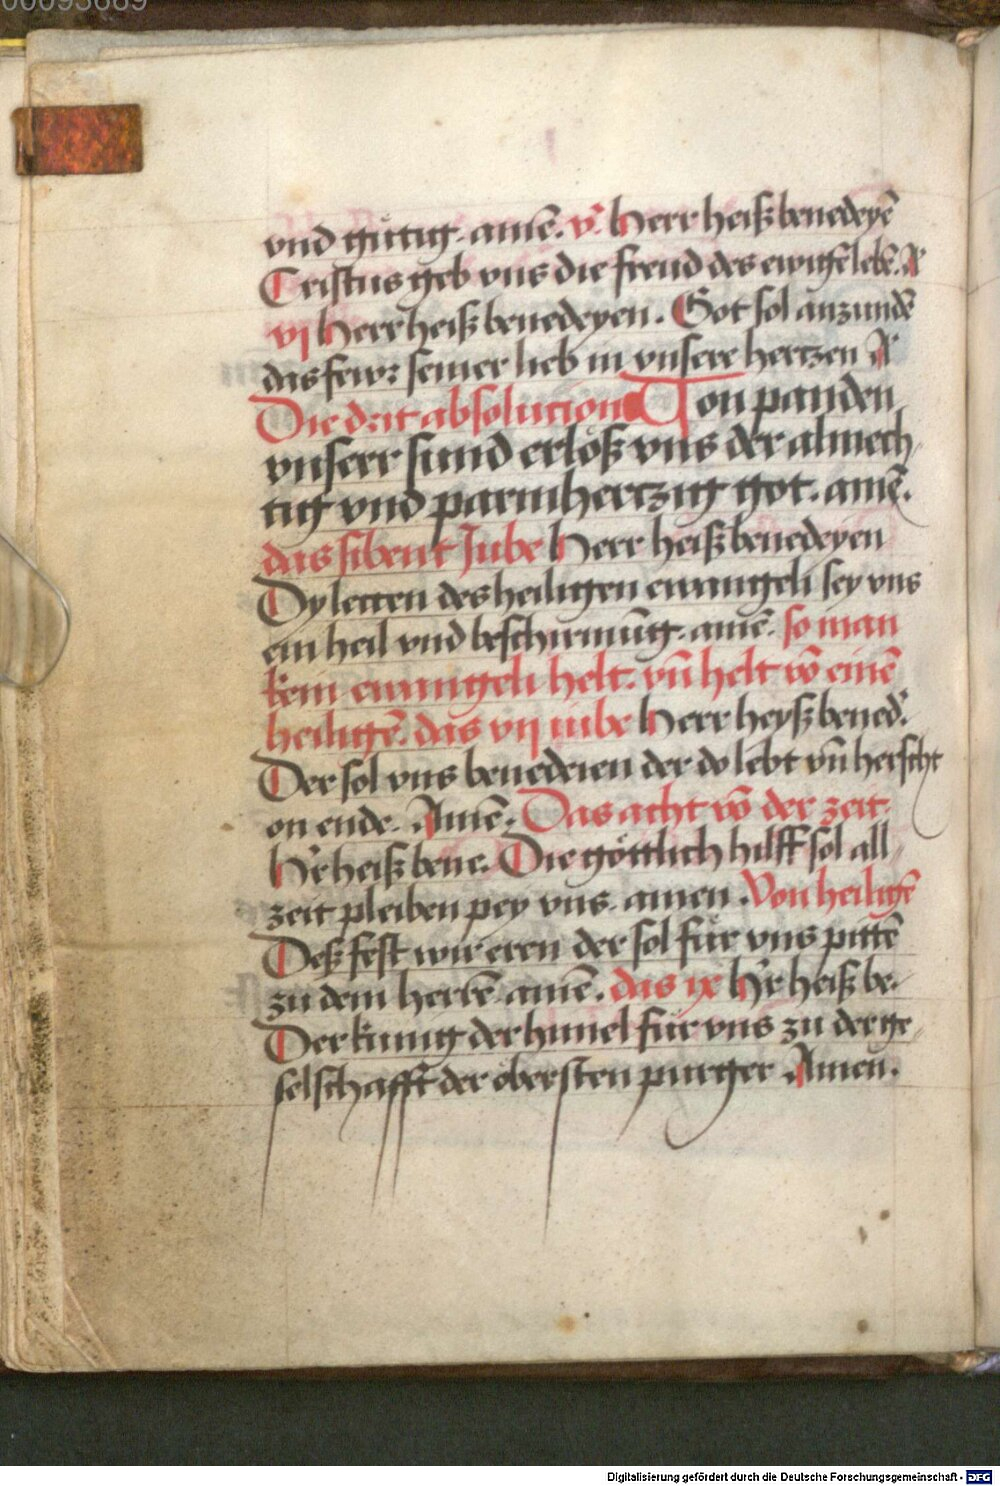 vnd gütig. amē. v̊. Herr heiß benedeyē
Cristus geb vns die freud des ewigē lebē. A
vj Herr heiß benedeyen. Got sol anzundē
das fewr seiner lieb in vnsere hertzen A
Die drit absolucion Von panden
vnserr sund erlöß vns der almech
tig vnd parmhertzig got. amē.
das sibent Jube Herr heiß benedeyen
Dy letzen des heiligen ewangeli sey vns
ein heil vnd beschirmūg. amē. so man
kein ewangeli helt. vn̄ helt vō einē
heiligē. das vij iube Herr heyß bened.
Der sol vns benedeien der do lebt vn̄ herscht
on ende. Amē. Das acht vō der zeit.
Hr heiß bene. Die göttlich hilff sol all
zeit pleiben pey vns. amen. Von heiligē
Deß fest wir eren der sol für vns pittē
zu dem herrē. amē. das ix Hr heiß be.
Der kunig der himel für vns zu der ge
selschafft der obersten purger Amen.
Digitalisierung gefördert durch die Deutsche Forschungsgemeinschaft - DFG